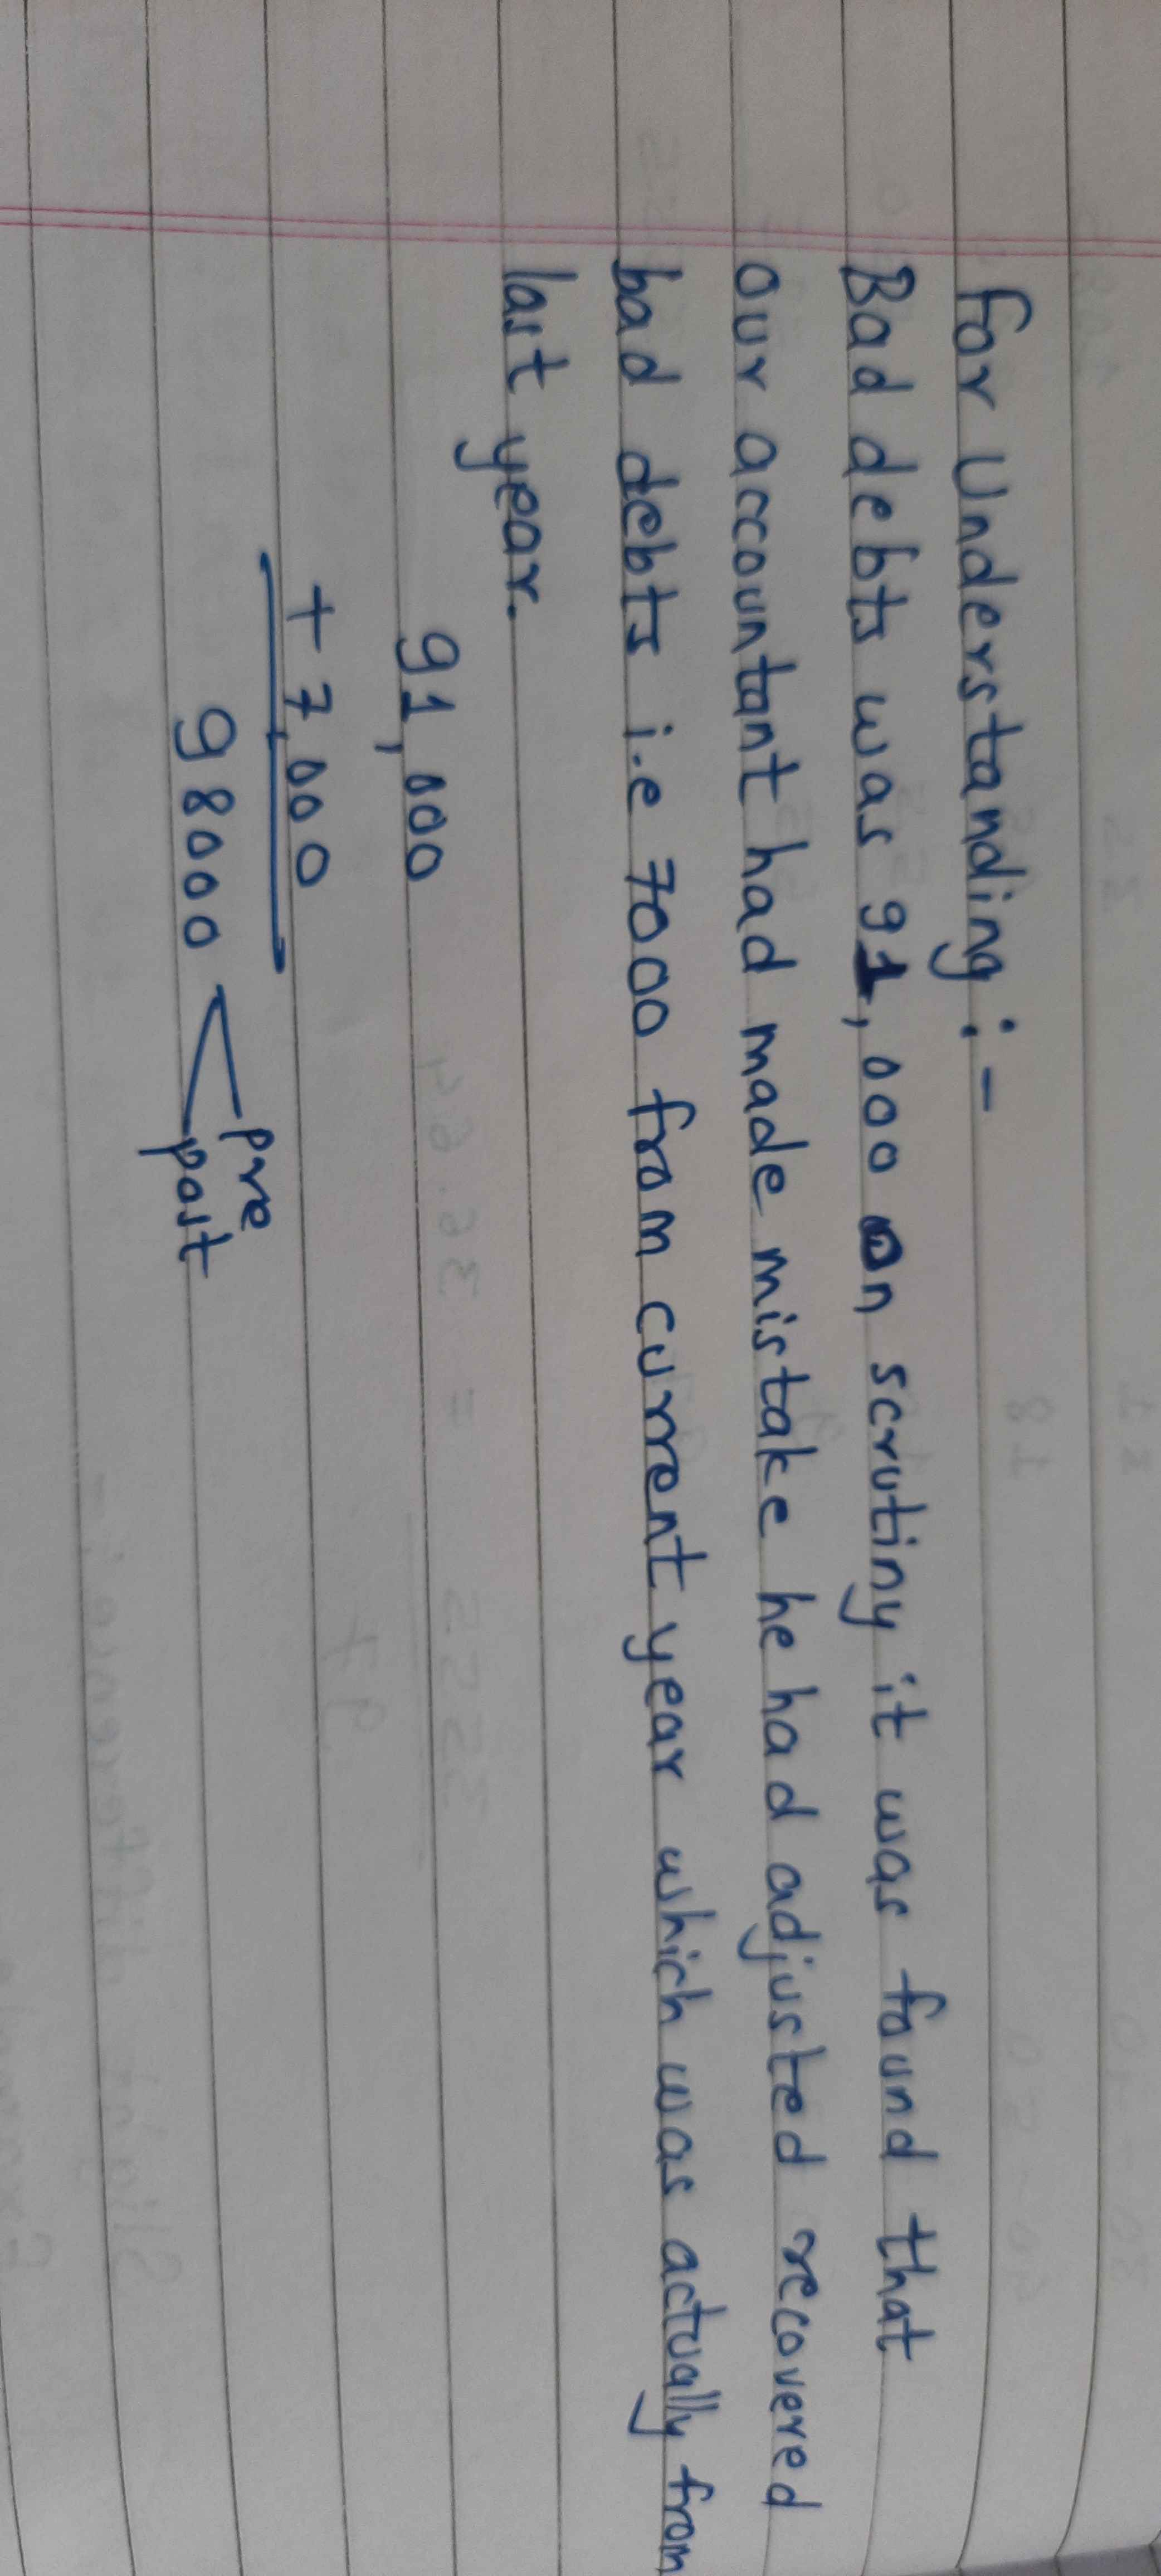 For Understanding :-
Bad debts was 91,000 on scrutiny it was found that
our accountant had made mistake he had adjusted recovered
bad debts i.e 7000 from current year which was actually from
last year.
91,000
+ 7,000
98000 < pre
post